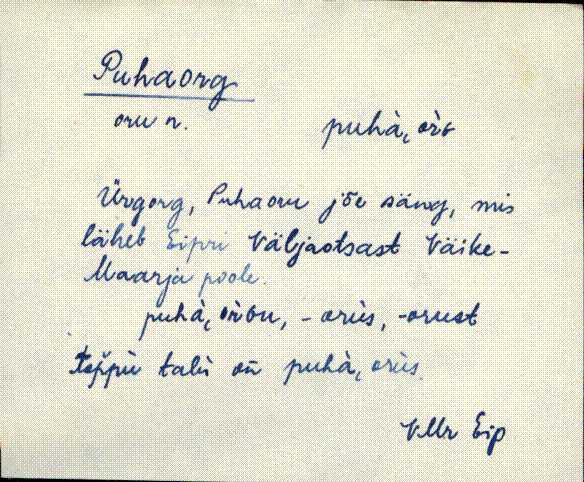 Puhaorg
oru n. puhà, òrG
Ürgorg, Puhaoru jõe säng, mis
läheb Eipri Väljaotsast Väike-
Maarja poole.
puhà, òrGu, -orùs, -orust
talù oñ puhà, orùs.
VMr Eip